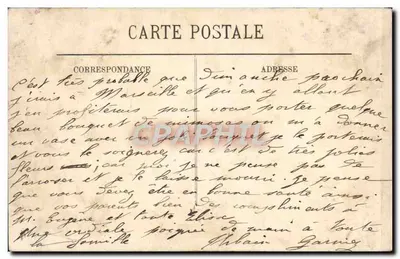 CARTE POSTALE
CORRESPONDANCE
ADRESSE
C'est très probable que Dimanche prochain
j'irais à Marseille et qu'en y allant
j'en profiterais pour vous porter quelque
beau bouquet de mimosas on m'a donner
un vase avec je le porterais
et vous le soignerez car c'est de très jolies
fleurs car moi je ne pense pas de
l'arroser et je le laisse mourir. Je pense
que vous devez être en bonne santé ainsi
que vos parents bien de compliments à
Mr Eugène et toute
cordiale poignée de main à toute
la famille